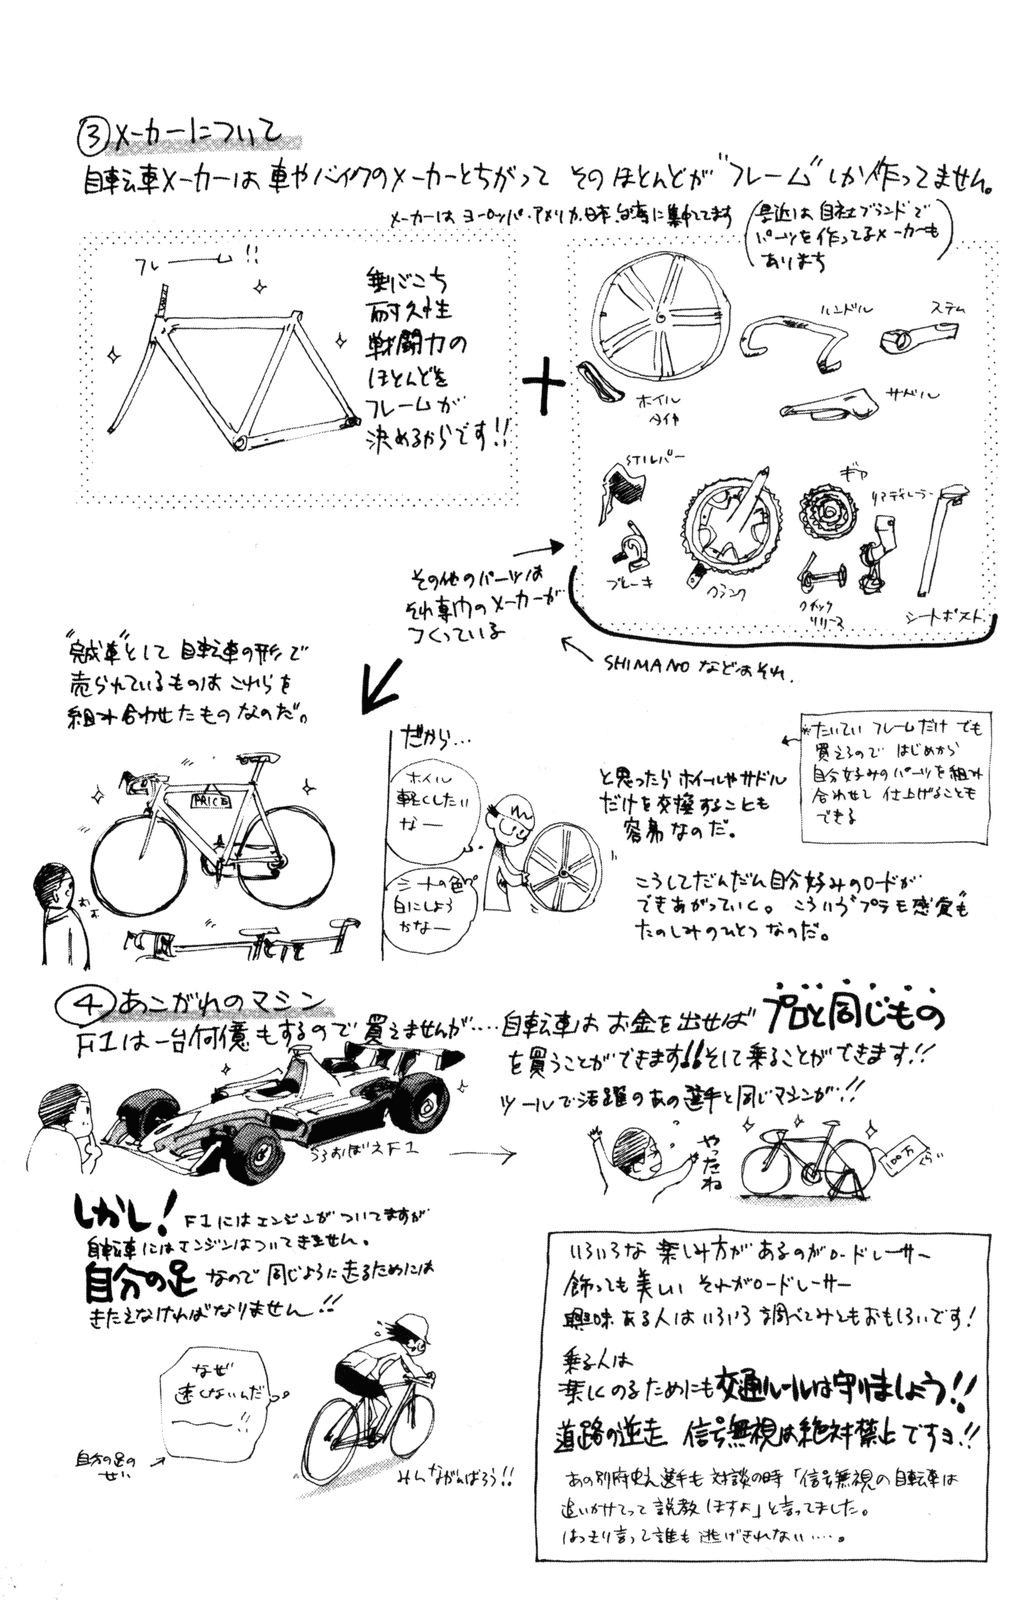 ③メーカーについて
自転車メーカーは車やバイクのメーカーとちがって そのほとんどが"フレーム"しか作ってません。
メーカーはヨーロッパ・アメリカ.日本.台湾に集中してます
最近は自社ブランドで
パーツを作ってるメーカーも
あります
フレーーーム!!
乗りごこち
耐久性
戦闘力の
ほとんどを
フレームが
決めるからです!!
+
ホイル
タイヤ
ハンドル
ステム
サドル
STIレバー
ブレーキ
クランク
ギヤ
クイック
リリース
リアディレーラー
シートポスト
その他のパーツは
それ専門のメーカーが
つくっている
SHIMANOなどはそれ.
"完成車"として自転車の形で
売られているものはこれらを
組み合わせたものなのだ。
PRICE
だから…
ホイル
軽くしたい
なー
シートの色
白にしよう
かなー
と思ったらホイールやサドル
だけを交換することも
容易なのだ。
※たいていフレームだけでも
買えるのではじめから
自分好みのパーツを組み
合わせて仕上げることも
できる
こうしてだんだん自分好みのロードが
できあがっていく。こういう"プラモ感覚"も
たのしみのひとつなのだ。
④あこがれのマシン
F1は一台何億もするので買えませんが‥‥自転車はお金を出せばプロと同じもの
を買うことができます!!そして乗ることができます!!
ツールで活躍のあの選手と同じマシンが!!
うろおぼえF1
やったね
100万
くらい
しかし!F1にはエンジンがついてますが
自転車にはエンジンはついてきません。
自分の足なので同じように走るためには
きたえなければなりません!!
なぜ
速くないんだ
――!!
自分の足の
せい
みんながんばろう!!
いろいろな楽しみ方があるのがロードレーサー
飾っても美しいそれがロードレーサー
興味ある人はいろいろ調べてみてもおもしろいです!
乗る人は
楽しくのるためにも交通ルールは守りましょう!!
道路の逆走 信号無視は絶対禁止ですョ!!
あの別府史之選手も対談の時「信号無視の自転車は
追いかけてって説教しますよ」と言ってました。
はっきり言って誰も逃げきれない‥‥。